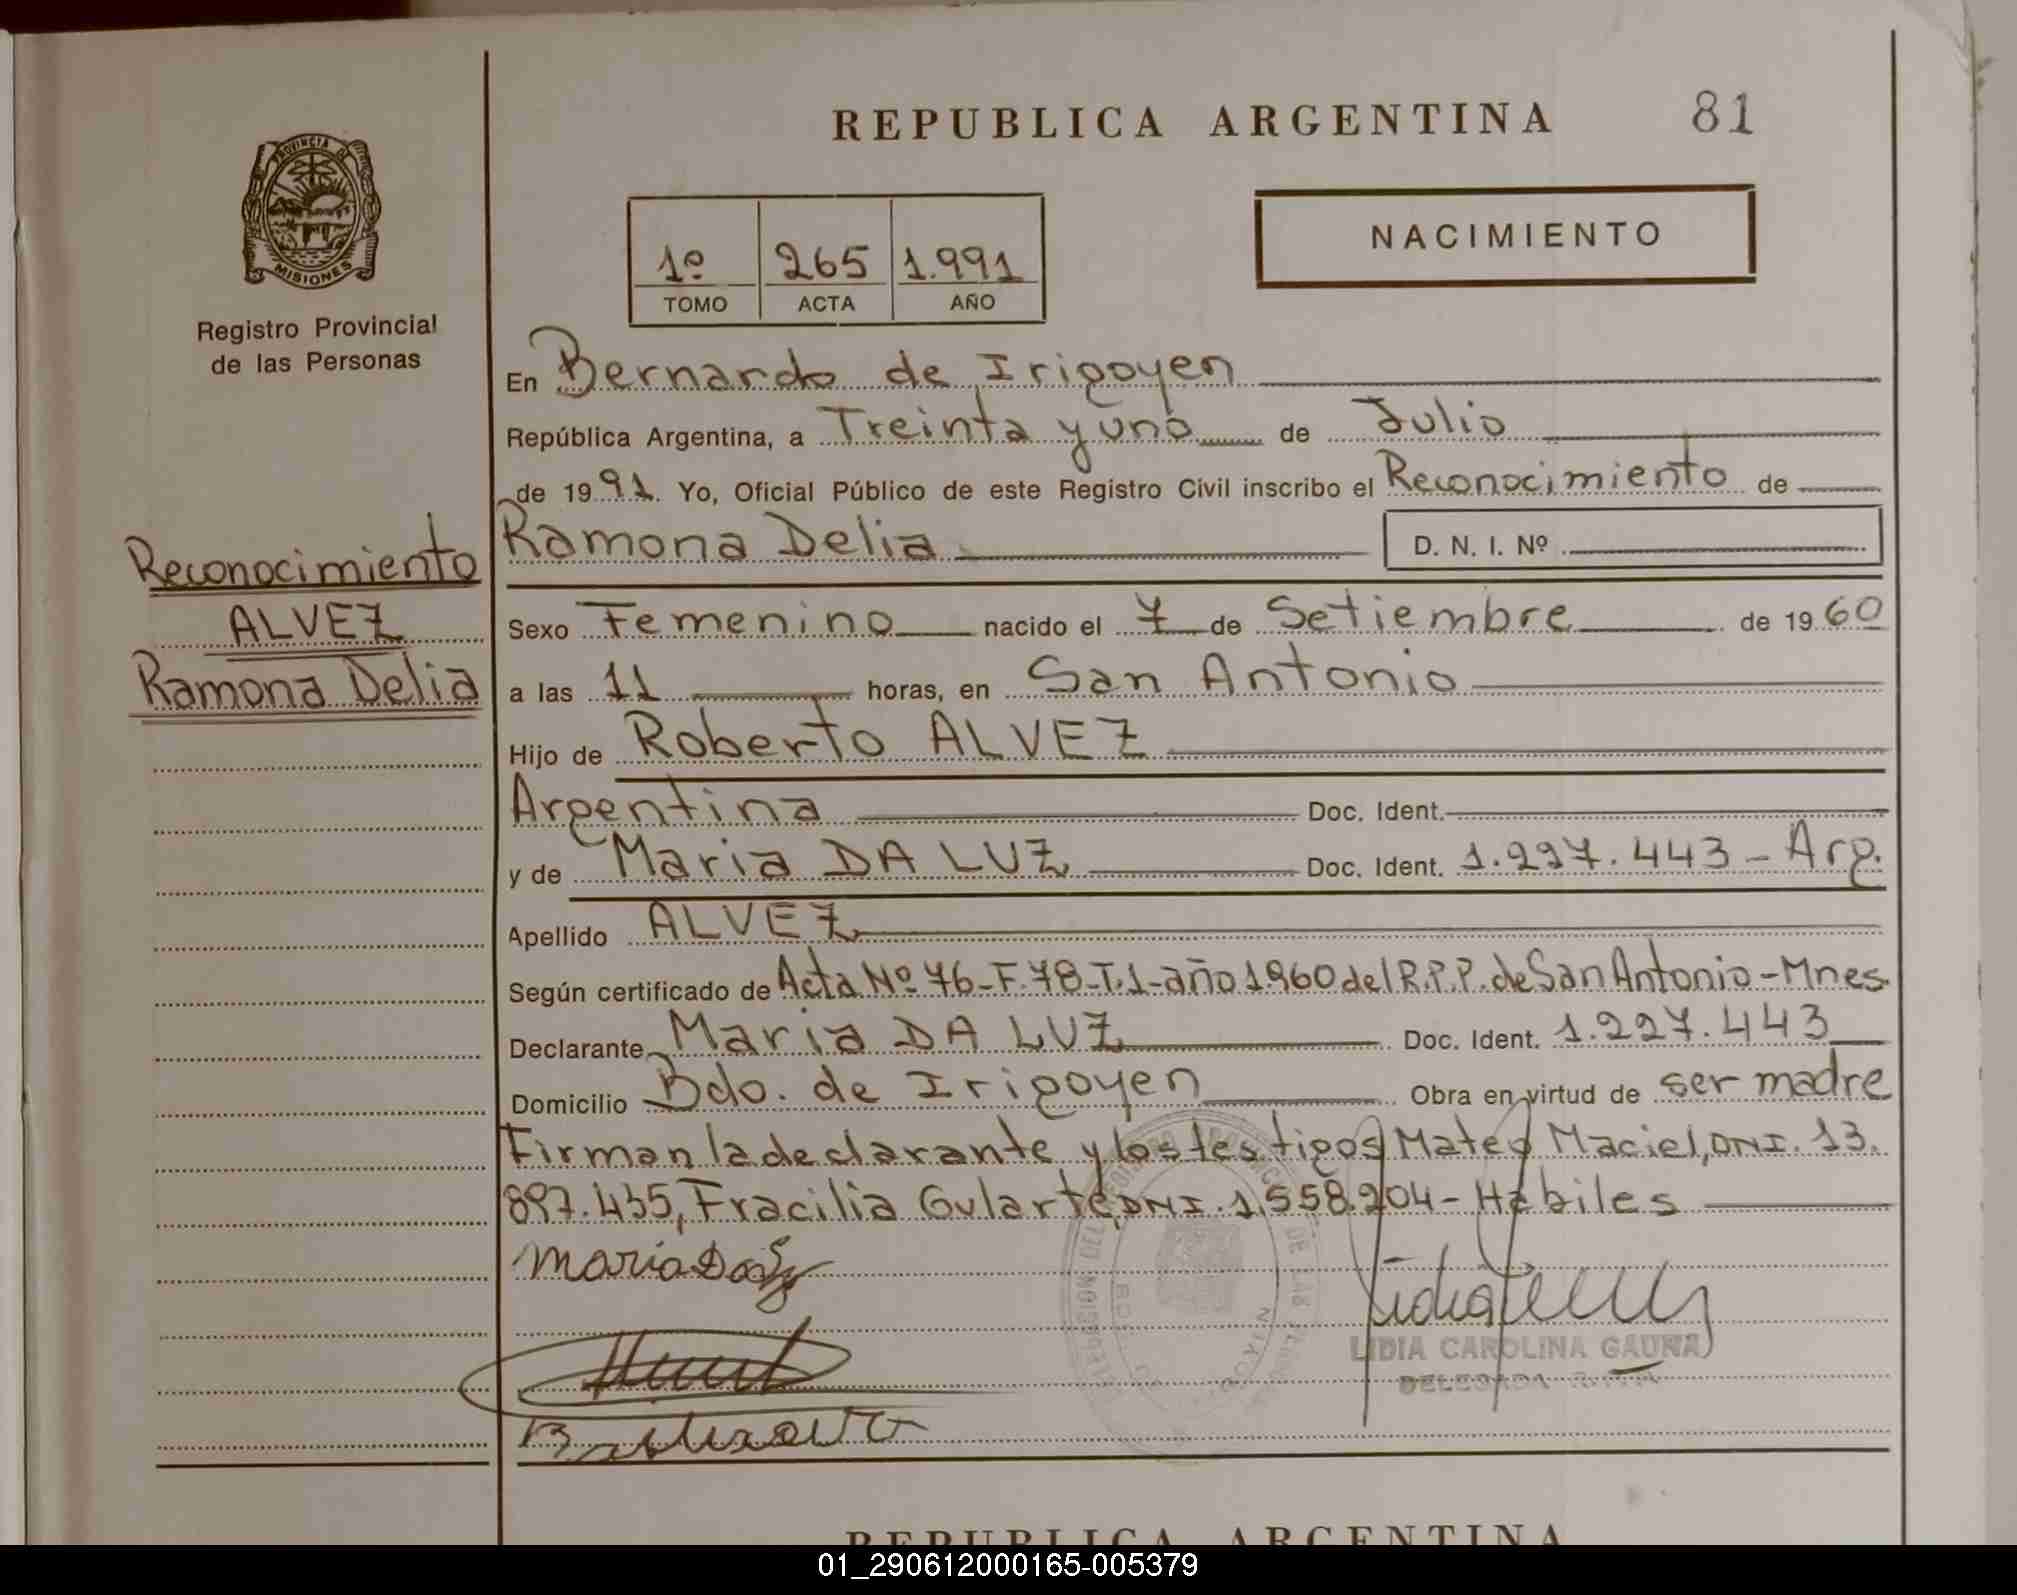 REPUBLICA ARGENTINA 81
PROVINCIA DE
MISIONES
Registro Provincial
de las Personas
1º 265 1.991
TOMO ACTA AÑO
NACIMIENTO
En Bernardo de Irigoyen
República Argentina, a Treinta y uno de Julio
de 1991. Yo, Oficial Público de este Registro Civil inscribo el Reconocimiento de
Ramona Delia D. N. I. Nº
Reconocimiento
ALVEZ
Ramona Delia
Sexo Femenino nacido el 7 de Setiembre de 1960
a las 11 horas, en San Antonio
Hijo de Roberto ALVEZ
Argentina Doc. Ident.
y de Maria DA LUZ Doc. Ident. 1.227.443 - Arg.
Apellido ALVEZ
Según certificado de Acta Nº 76-F.78-T.1-año 1960 del R.P.P. de San Antonio-Mnes
Declarante Maria DA LUZ Doc. Ident. 1.227.443
Domicilio Bdo. de Irigoyen Obra en virtud de ser madre
Firman la declarante y los testigos Mateo Maciel, DNI. 13.
897.435, Fracilia Gularte, DNI. 1.558.204 - Hábiles
Maria Da
LIDIA CAROLINA GAUNA
DELEGADA
REPUBLICA ARGENTINA
01_290612000165-005379